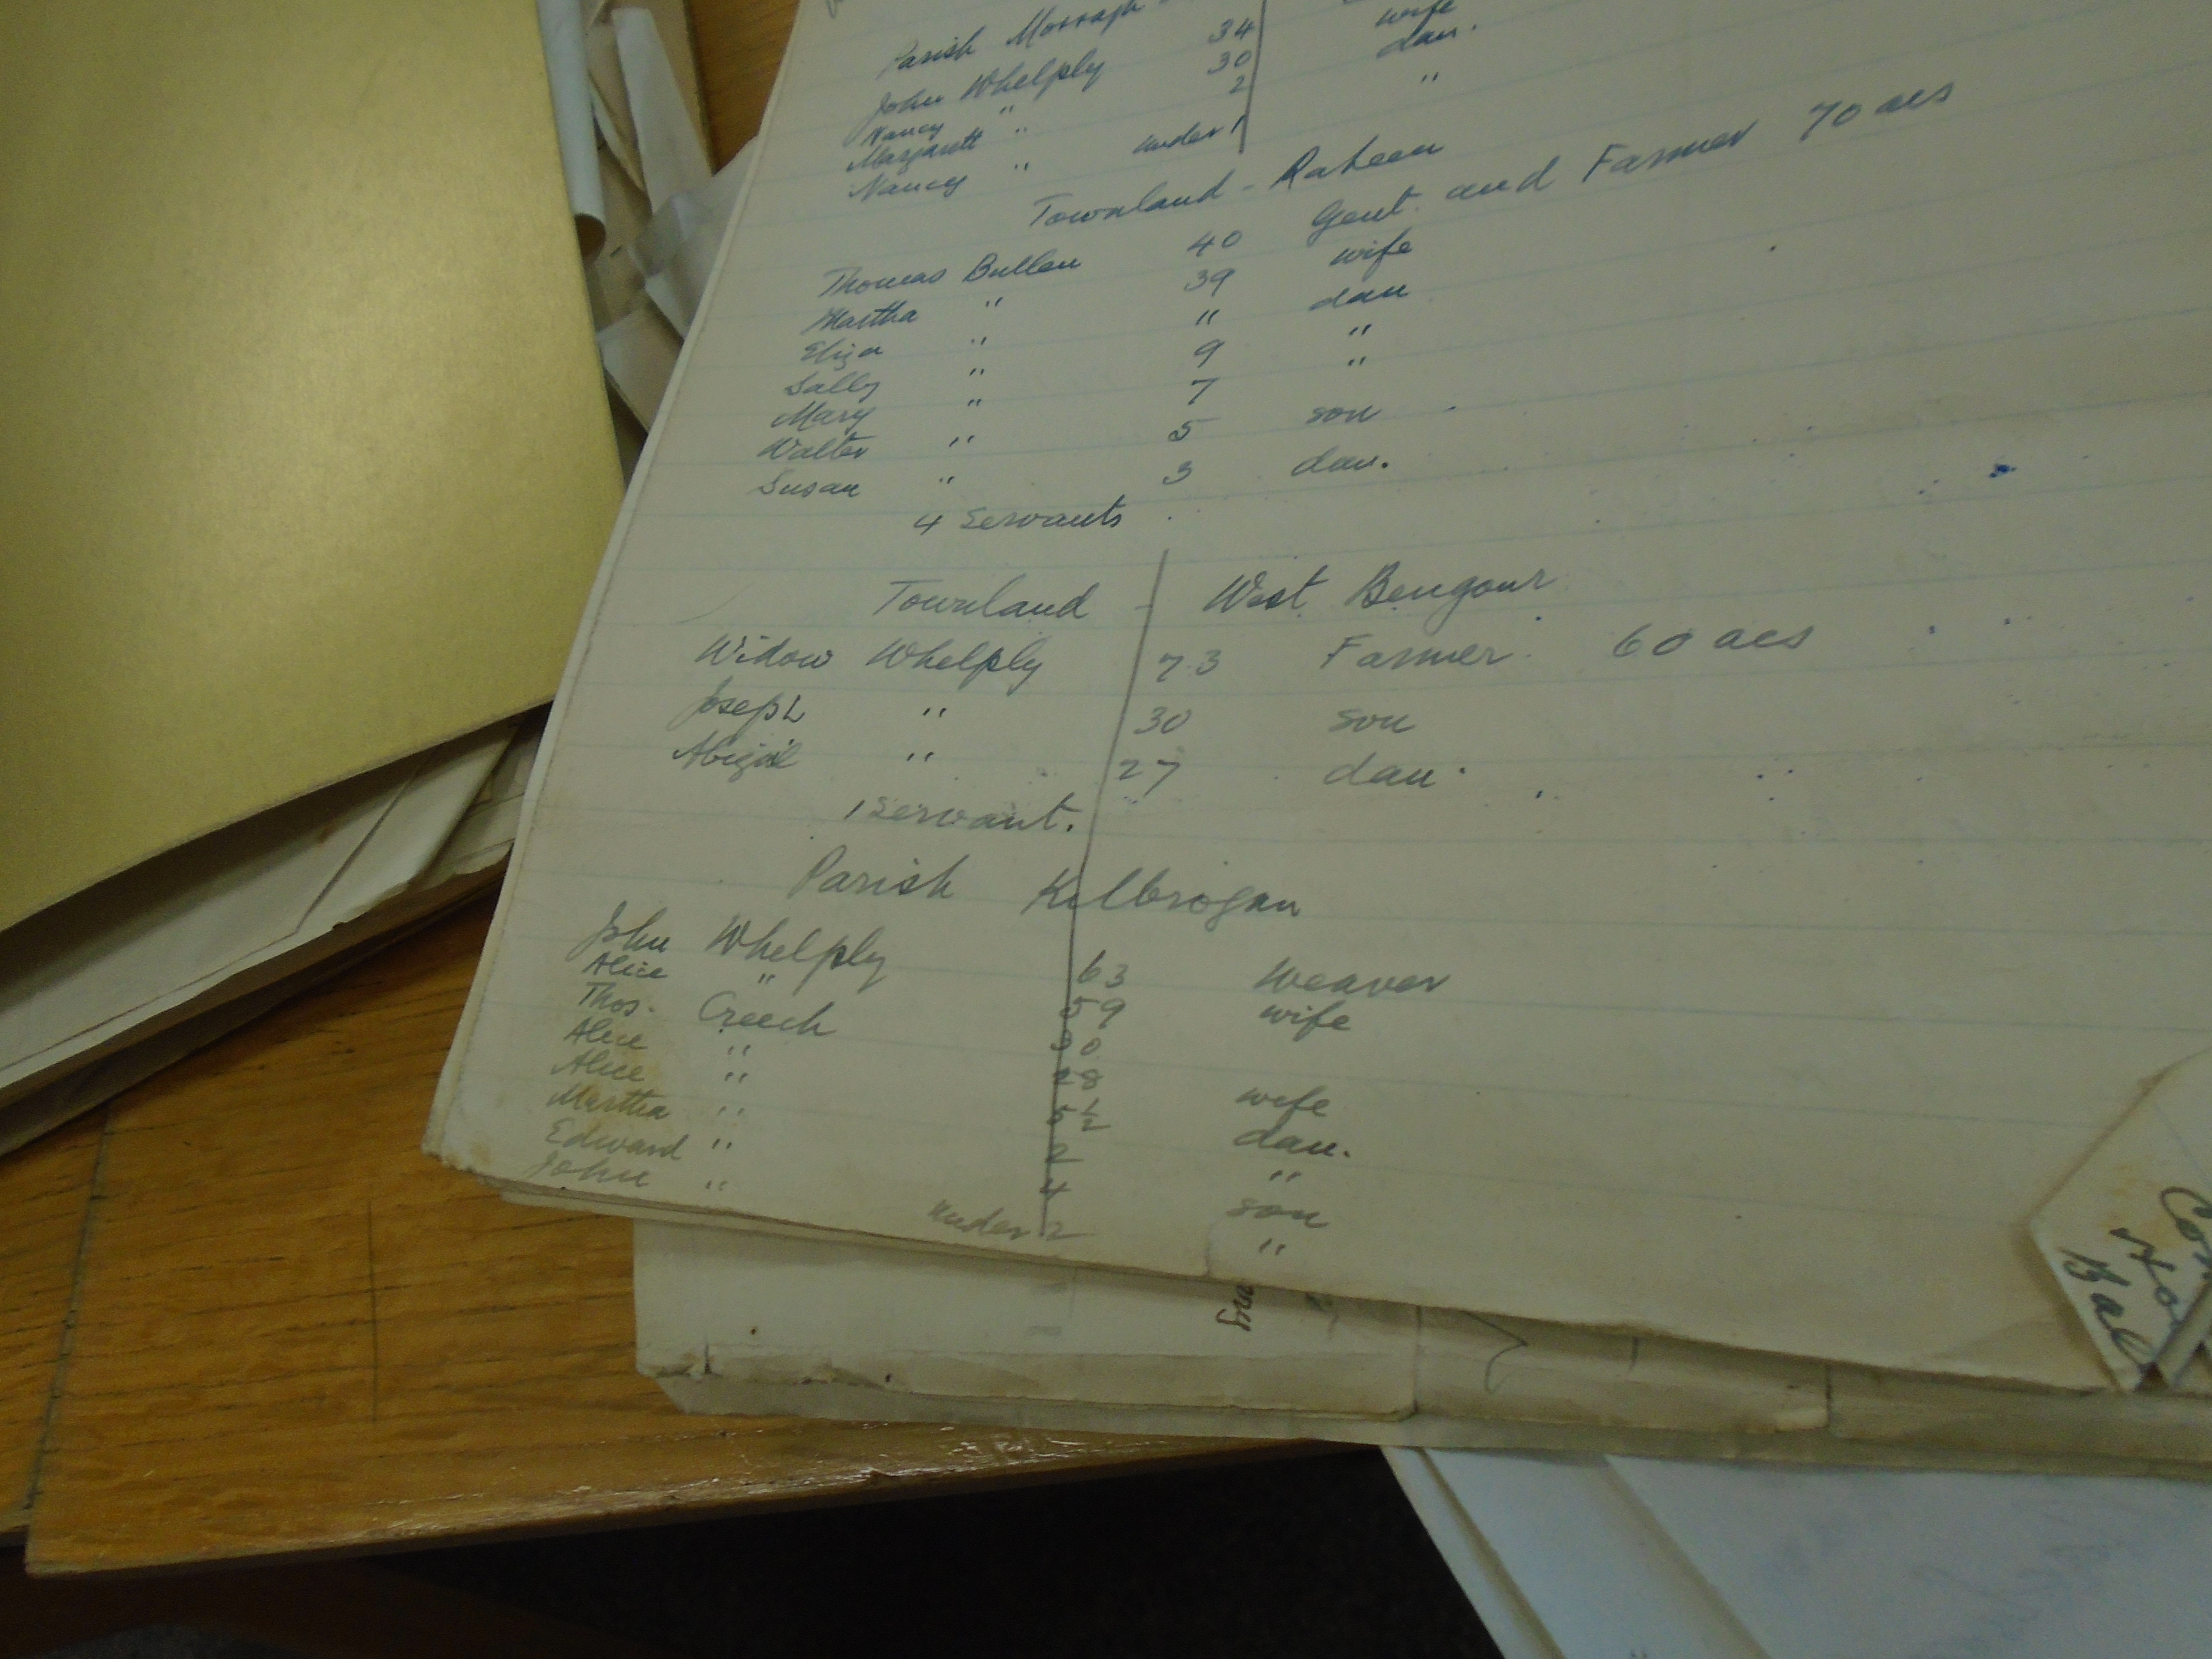 Parish Morragh
John Whelply 34
Nancy " 30 wife
Margarett " 2 dau.
Nancy " under 1 "
Townland - Raheen
Thomas Bullen 40 Gent. and Farmer 70 acs
Martha " 39 wife
Eliza " 11 dau
Sally " 9 "
Mary " 7 "
Walter " 5 son
Susan " 3 dau.
4 Servants
Townland - West Bengour
Widow Whelply 73 Farmer 60 acs
Joseph " 30 son
Abigail " 27 dau.
1 servant.
Parish Kilbrogan
John Whelply 63 Weaver
Alice " 59 wife
Thos. Creech 30
Alice " 28 wife
Alice " 5½ dau.
Martha " 2 "
Edward " 4 son
John " under 2 "
Bal